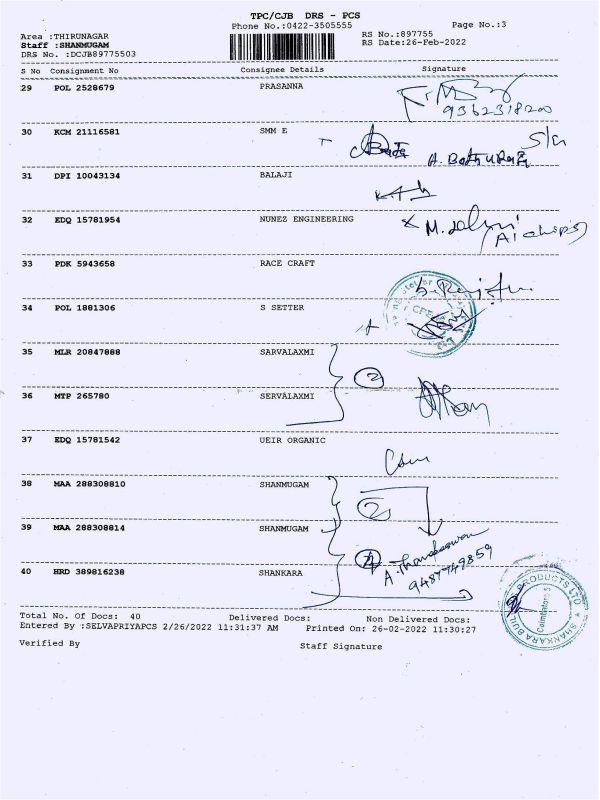 TPC/CJB DRS - PCS
Phone No.:0422-3505555
Page No.:3
Area :THIRUNAGAR
RS No.:897755
Staff :SHANMUGAM
RS Date:26-Feb-2022
DRS No. :DCJB89775503
S No Consignment No Consignee Details Signature
29 POL 2528679 PRASANNA
9362318200
30 KCM 21116581 SMM E
31 DPI 10043134 BALAJI
32 EDQ 15781954 NUNEZ ENGINEERING
33 PDK 5943658 RACE CRAFT
34 POL 1881306 S SETTER
35 MLR 20847888 SARVALAXMI
2
36 MTP 265780 SERVALAXMI
37 EDQ 15781542 UEIR ORGANIC
38 MAA 288308810 SHANMUGAM
2
39 MAA 288308814 SHANMUGAM
9487749859
40 HRD 389816238 SHANKARA
SHANKARA BUIL PRODUCTS LTD
Coimbatore
Total No. Of Docs: 40 Delivered Docs: Non Delivered Docs:
Entered By :SELVAPRIYAPCS 2/26/2022 11:31:37 AM Printed On: 26-02-2022 11:30:27
Verified By
Staff Signature